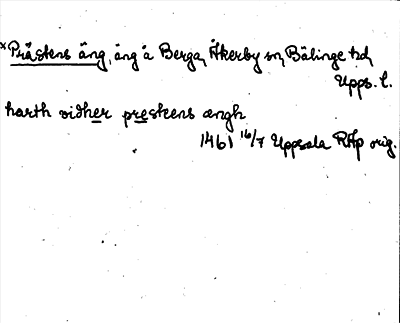 ×Prästens äng, äng å Berga, Åkerby sn, Bälinge hd,
Upps. l.
harth widher presteens ængh
1461 16/7 Uppsala RAp orig.